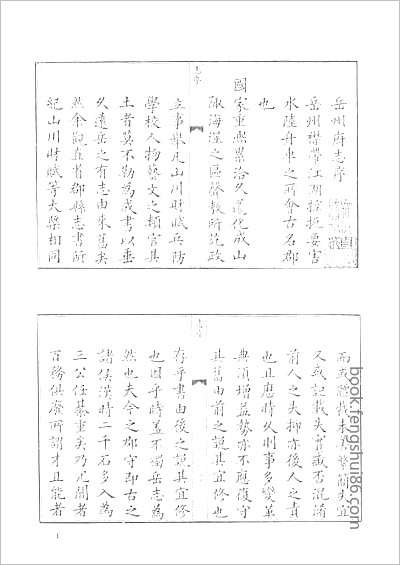 岳州府志序
岳州襟帶江湖控扼要害
水陸舟車之所會古名郡
也
國家重熙累洽久道化成山
陬海澨之區聲教所訖政
志序
立事舉凡山川財賦兵防
學校人物藝文之類官其
土者莫不勒為成書以垂
久遠岳之有志由來舊矣
然余觀直省郡縣志書所
紀山川財賦等大槩相同
而或裁未繁簡失宜
又或記載失實臧否混淆
前人之失抑亦後人之責
也且歷時久則事多變革
典須增益勢亦不應復守
其舊由前之說其宜修也
存乎書由後之說其宜修
也因乎時蓋不獨岳志為
然也夫今之郡守即古之
諸侯漢時二千石多入為
三公任綦重矣乃者
百務俱廢所謂才且能者
1
book.fengshui86.com